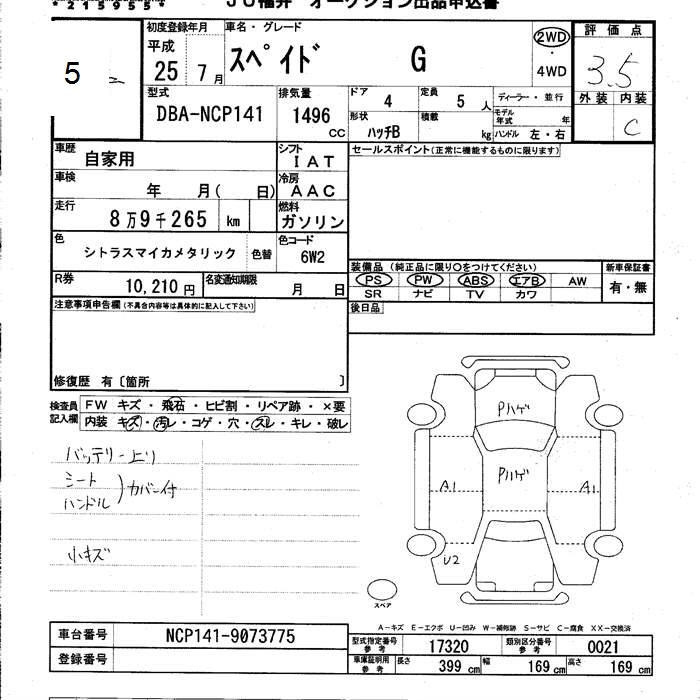 * 2 1 5 9 5 5 *
JU福井 オークション出品申込書
5
初度登録年月
平成
25年7月
車名・グレード
スペイド G
2WD
・
4WD
評価点
3.5
外装 内装
C
型式
DBA-NCP141
排気量
1496
CC
ドア
4
定員
5人
ディーラー・並行
モデル年式 年
形状
ハッチB
積載
kg
ハンドル 左・右
車歴
自家用
シフト
IAT
セールスポイント(正常に機能するものに限ります)
車検
年 月( 日)
冷房
AAC
走行
8万9千265 km
燃料
ガソリン
色
シトラスマイカメタリック
色替
色コード
6W2
装備品 (純正品に限り○をつけてください)
新車保証書
PS PW ABS エアB AW
有・無
SR ナビ TV カワ
R券
10,210円
名変通知期限
月 日
後日品
注意事項申告欄(不具合内容等は具体的に記入して下さい)
修復歴 有〔箇所 〕
検査員記入欄
FW キズ・飛石・ヒビ割・リペア跡・×要
内装 キズ・汚レ・コゲ・穴・スレ・キレ・破レ
バッテリー上り
シート
ハンドル
)カバー付
小キズ
Pハゲ
Pハゲ
A1
A1
U2
スペア
A-キズ E-エクボ U-凹み W-補修跡 S-サビ C-腐食 XX-交換済
車台番号
NCP141-9073775
登録番号
型式指定番号
参考
17320
類別区分番号
参考
0021
車庫証明用
参考
長さ
399 cm
幅
169 cm
高さ
169 cm